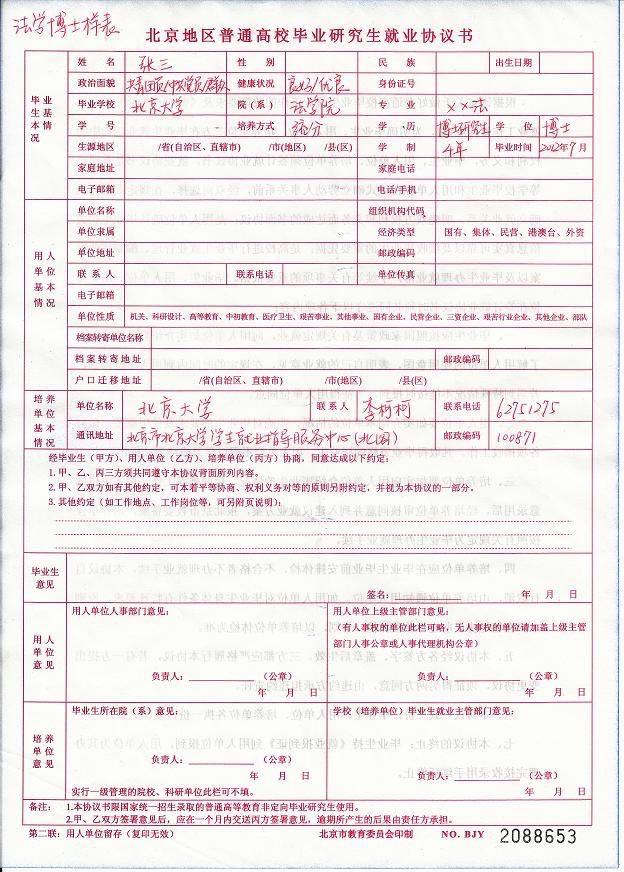 法学博士样表
北京地区普通高校毕业研究生就业协议书
毕业生基本情况
姓名 张三 性别 民族 出生日期
政治面貌 共青团员/中共党员/群众 健康状况 良好/优良 身份证号
毕业学校 北京大学 院(系) 法学院 专业 ××法
学号 培养方式 统分 学历 博士研究生 学位 博士
生源地区 /省(自治区、直辖市) /市(地区) /县(区) 学制 4年 毕业时间 2012年7月
家庭地址 家庭电话
电子邮箱 电话/手机
用人单位基本情况
单位名称 组织机构代码
单位隶属 经济类型 国有、集体、民营、港澳台、外资
单位地址 邮政编码
联系人 联系电话 单位传真
电子邮箱
单位性质 机关、科研设计、高等教育、中初教育、医疗卫生、艰苦事业、其他事业、国有企业、民营企业、三资企业、艰苦行业企业、其他企业、部队
档案转寄单位名称
档案转寄地址 邮政编码
户口迁移地址 /省(自治区、直辖市) /市(地区) /县(区)
培养单位基本情况
单位名称 北京大学 联系人 李柯柯 联系电话 62751275
通讯地址 北京市北京大学学生就业指导服务中心(北阁) 邮政编码 100871
经毕业生(甲方)、用人单位(乙方)、培养单位(丙方)协商,同意达成以下约定:
1.甲、乙、丙三方须共同遵守本协议背面所列内容。
2.甲、乙双方如有其他约定,可本着平等协商、权利义务对等的原则另附约定,并视为本协议的一部分。
3.其他约定(如工作地点、工作岗位等,可另附页说明):
毕业生意见
签名: 年 月 日
用人单位意见
用人单位人事部门意见: 用人单位上级主管部门意见:
(有人事权的单位此栏可略,无人事权的单位请加盖上级主管
部门人事公章或人事代理机构公章)
负责人: (公章) 负责人: (公章)
年 月 日 年 月 日
培养单位意见
毕业生所在院(系)意见: 学校(培养单位)毕业生就业主管部门意见:
负责人: (公章)
年 月 日 负责人: (公章)
实行一级管理的院校、科研单位此栏可不填。 年 月 日
备注: 1.本协议书限国家统一招生录取的普通高等教育非定向毕业研究生使用。
2.甲、乙双方签署意见后,应在一个月内交送丙方签署意见,逾期所产生的后果由责任方承担。
第二联:用人单位留存(复印无效) 北京市教育委员会印制 NO. BJY 2088653